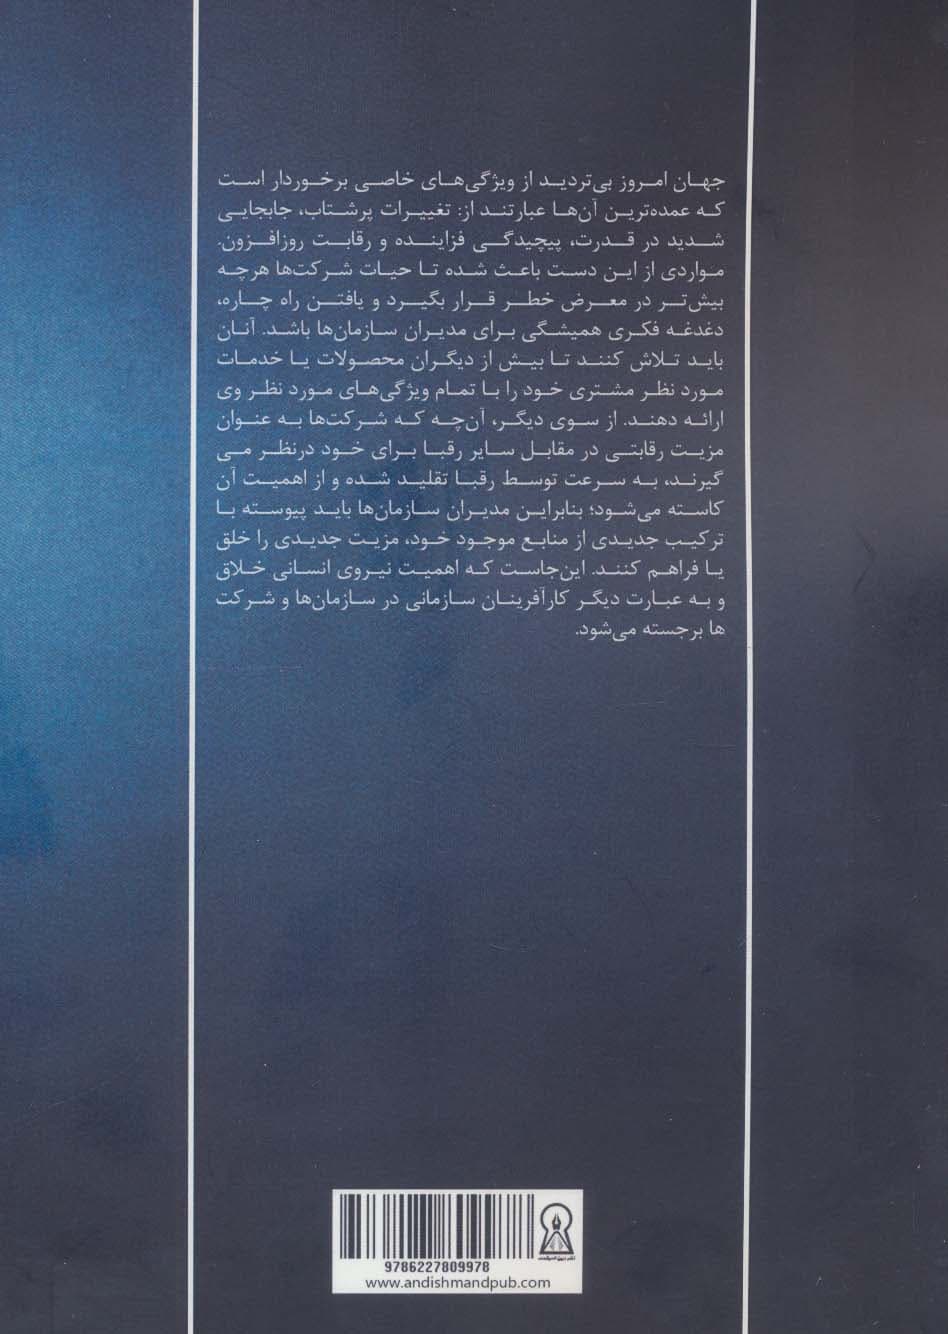 جهان امروز بی‌تردید از ویژگی‌های خاصی برخوردار است
که عمده‌ترین آن‌ها عبارتند از: تغییرات پرشتاب، جابجایی
شدید در قدرت، پیچیدگی فزاینده و رقابت روزافزون.
مواردی از این دست باعث شده تا حیات شرکت‌ها هرچه
بیش‌تر در معرض خطر قرار بگیرد و یافتن راه چاره،
دغدغه فکری همیشگی برای مدیران سازمان‌ها باشد. آنان
باید تلاش کنند تا بیش از دیگران محصولات یا خدمات
مورد نظر مشتری خود را با تمام ویژگی‌های مورد نظر وی
ارائه دهند. از سوی دیگر، آن‌چه که شرکت‌ها به عنوان
مزیت رقابتی در مقابل سایر رقبا برای خود درنظر می
گیرند، به سرعت توسط رقبا تقلید شده و از اهمیت آن
کاسته می‌شود؛ بنابراین مدیران سازمان‌ها باید پیوسته با
ترکیب جدیدی از منابع موجود خود، مزیت جدیدی را خلق
یا فراهم کنند. این‌جاست که اهمیت نیروی انسانی خلاق
و به عبارت دیگر کارآفرینان سازمانی در سازمان‌ها و شرکت
ها برجسته می‌شود.
9786227809978
www.andishmandpub.com